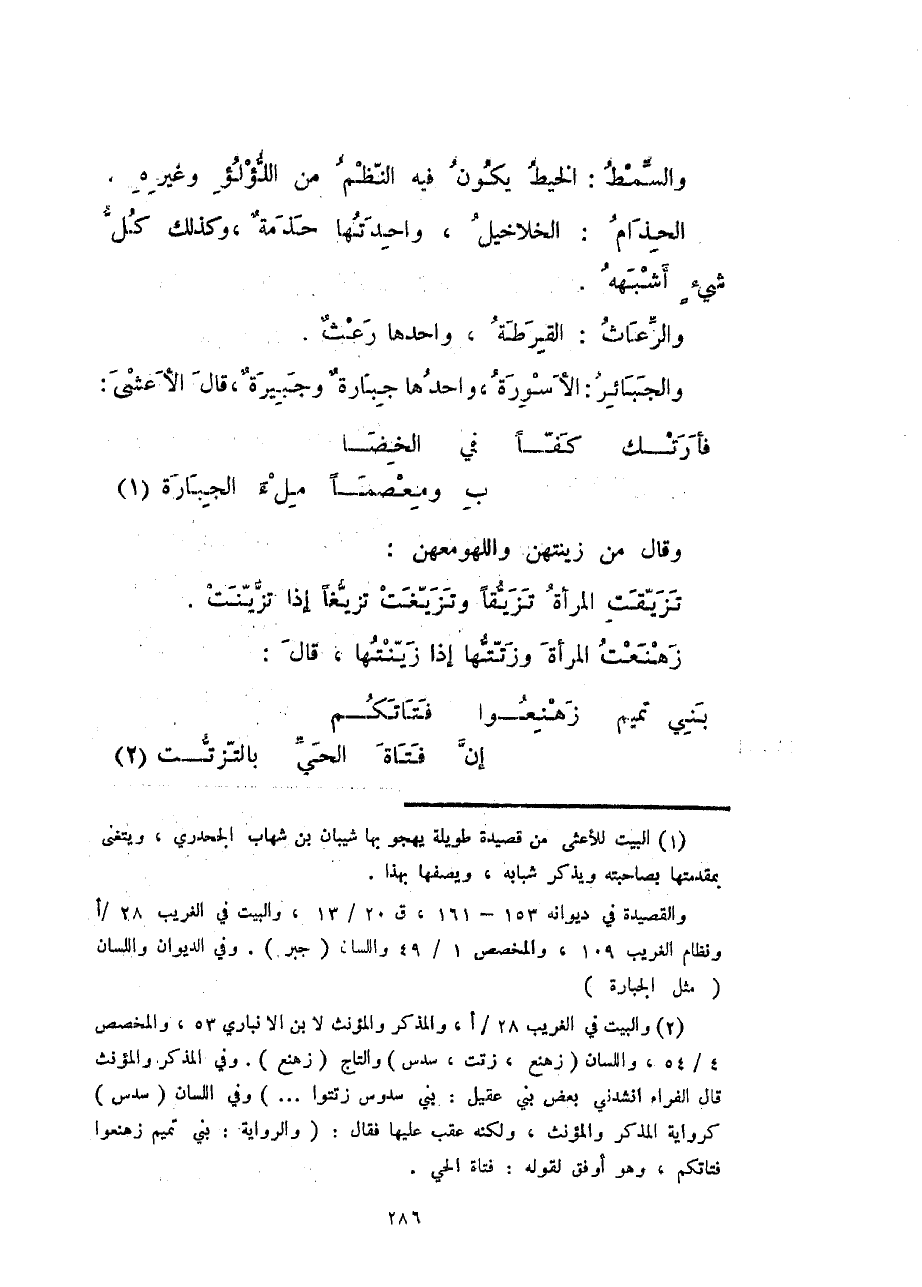 والسِّمْطُ : الخيطُ يكُونُ فيه النّظْمُ من اللُّؤْلُؤِ وغيرِهِ .
الحِذَامُ : الخلاخيلُ ، واحِدَتُها حَذَمَةٌ ،وكذلك كُلُّ
شيءٍ أَشْبَههُ .
والرِّعَاثُ : القِرَطَةُ ، واحدها رَعْثٌ .
والجَبَائِرُ: الأَسْوِرَةُ،واحدُها جِبَارةٌ وجَبِيرَةٌ،قالَ الأَعشىَ:
فأَرَتْـــك كَفّــاً في الخِضَــا
بِ ومِعْصمَــاً مِلْءَ الجِبَارَة (١)
وقال من زينتهن واللهومعهن :
تَزَيّقَتِ المرأةُ تَزَيُّقاً وتَزَيّغَتْ تزيُّغاً إذا تزَّيّنَتْ .
زَهْنَعْتُ المرأةَ وزَتّتُّها إذا زَيّنْتُها ، قالَ :
بَنِي تميم زَهْنِعُــوا فَتَاتَكُــم
إنَّ فَتَاةَ الحَيِّ بالتّزتُّــت (٢)
(١) البيت للأعشى من قصيدة طويلة يهجو بها شيبان بن شهاب الجحدري ، ويتغنى
بمقدمتها بصاحبته ويذكر شبابه ، ويصفها بهذا .
والقصيدة في ديوانه ١٥٣ – ١٦١ ، ق ٢٠ / ١٣ ، والبيت في الغريب ٢٨ /أ
ونظام الغريب ١٠٩ ، والمخصص ١ / ٤٩ واللسان ( جبر ) . وفي الديوان واللسان
( مثل الجبارة )
(٢) والبيت في الغريب ٢٨ /أ ، والمذكر والمؤنث لابن الانباري ٥٣ ، والمخصص
٤ / ٥٤ ، واللسان ( زهنع ، زتت ، سدس ) والتاج ( زهنع ) . وفي المذكر والمؤنث
قال الفراء انشدني بعض بني عقيل : بني سدوس زتتوا ... ) وفي اللسان ( سدس )
كرواية المذكر والمؤنث ، ولكنه عقب عليها فقال : ( والرواية : بني تميم زهنعوا
فتاتكم ، وهو أوفق لقوله : فتاة الحي .
٢٨٦